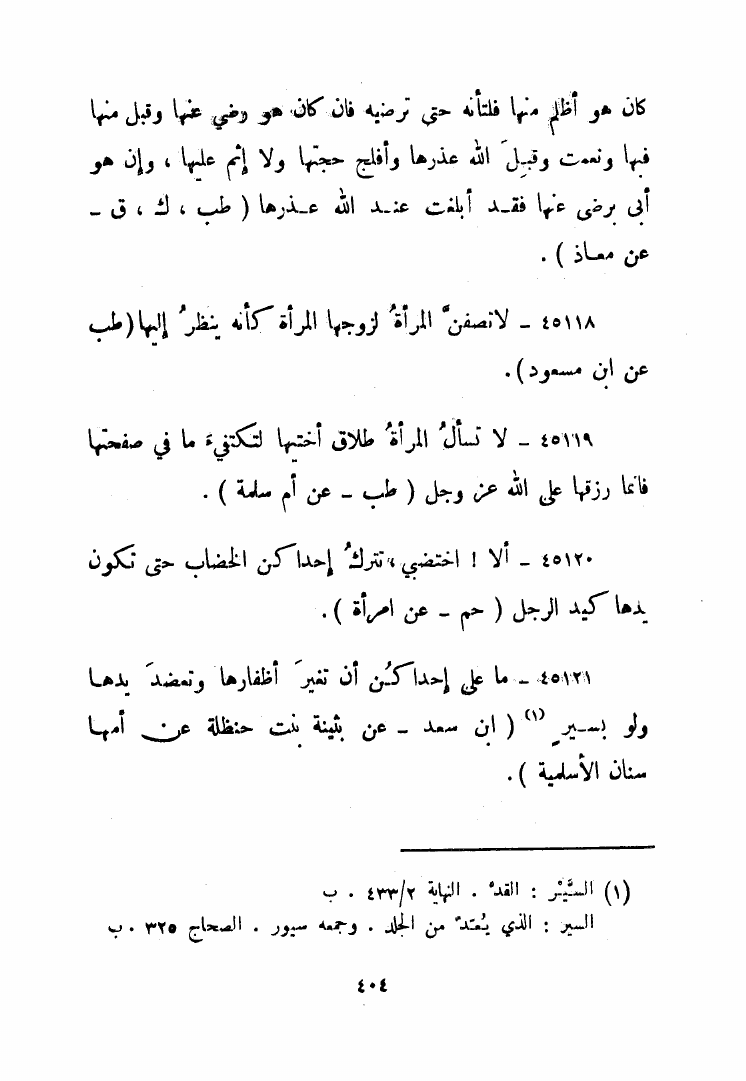 كان هو أظلم منها فلتأته حتى ترضيه فان كان هو رضي عنها وقبل منها
فبها ونعمت وقبلَ الله عذرها وأفلج حجتها ولا إثم عليها ، وإن هو
أبى برضى عنها فقد أبلغت عند الله عذرها ( طب ، ك ، ق -
عن معاذ ) .
٤٥١١٨ - لاتصفنَّ المرأةُ لزوجها المرأة كأنه ينظرُ إليها (طب
عن ابن مسعود).
٤٥١١٩ - لا تسألُ المرأةُ طلاق أختها لتكتفيءَ ما في صفحتها
فانما رزقها على الله عز وجل ( طب - عن أم سلمة ) .
٤٥١٢٠ - ألا ! اختضبي ، تتركُ إحداكن الخضاب حتى تكون
يدها كيد الرجل ( حم - عن امرأة ) .
٤٥١٢١ - ما على إحداكُن أن تغيرَ أظفارها وتعضدَ يدها
ولو بسيرٍ (١) ( ابن سعد - عن بثينة بنت حنظلة عن أمها
سنان الأسلمية ) .
(١) السَّيْر : القدُّ . النهاية ٤٣٣/٢ . ب
السير : الذي يُقدُّ من الجلد . وجمعه سيور . الصحاح ٣٢٥ . ب
٤٠٤